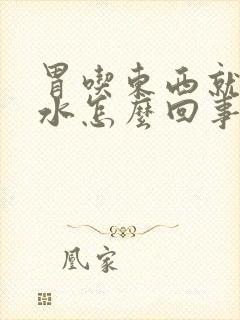 胃喫東西就
水怎麼回事
凰家